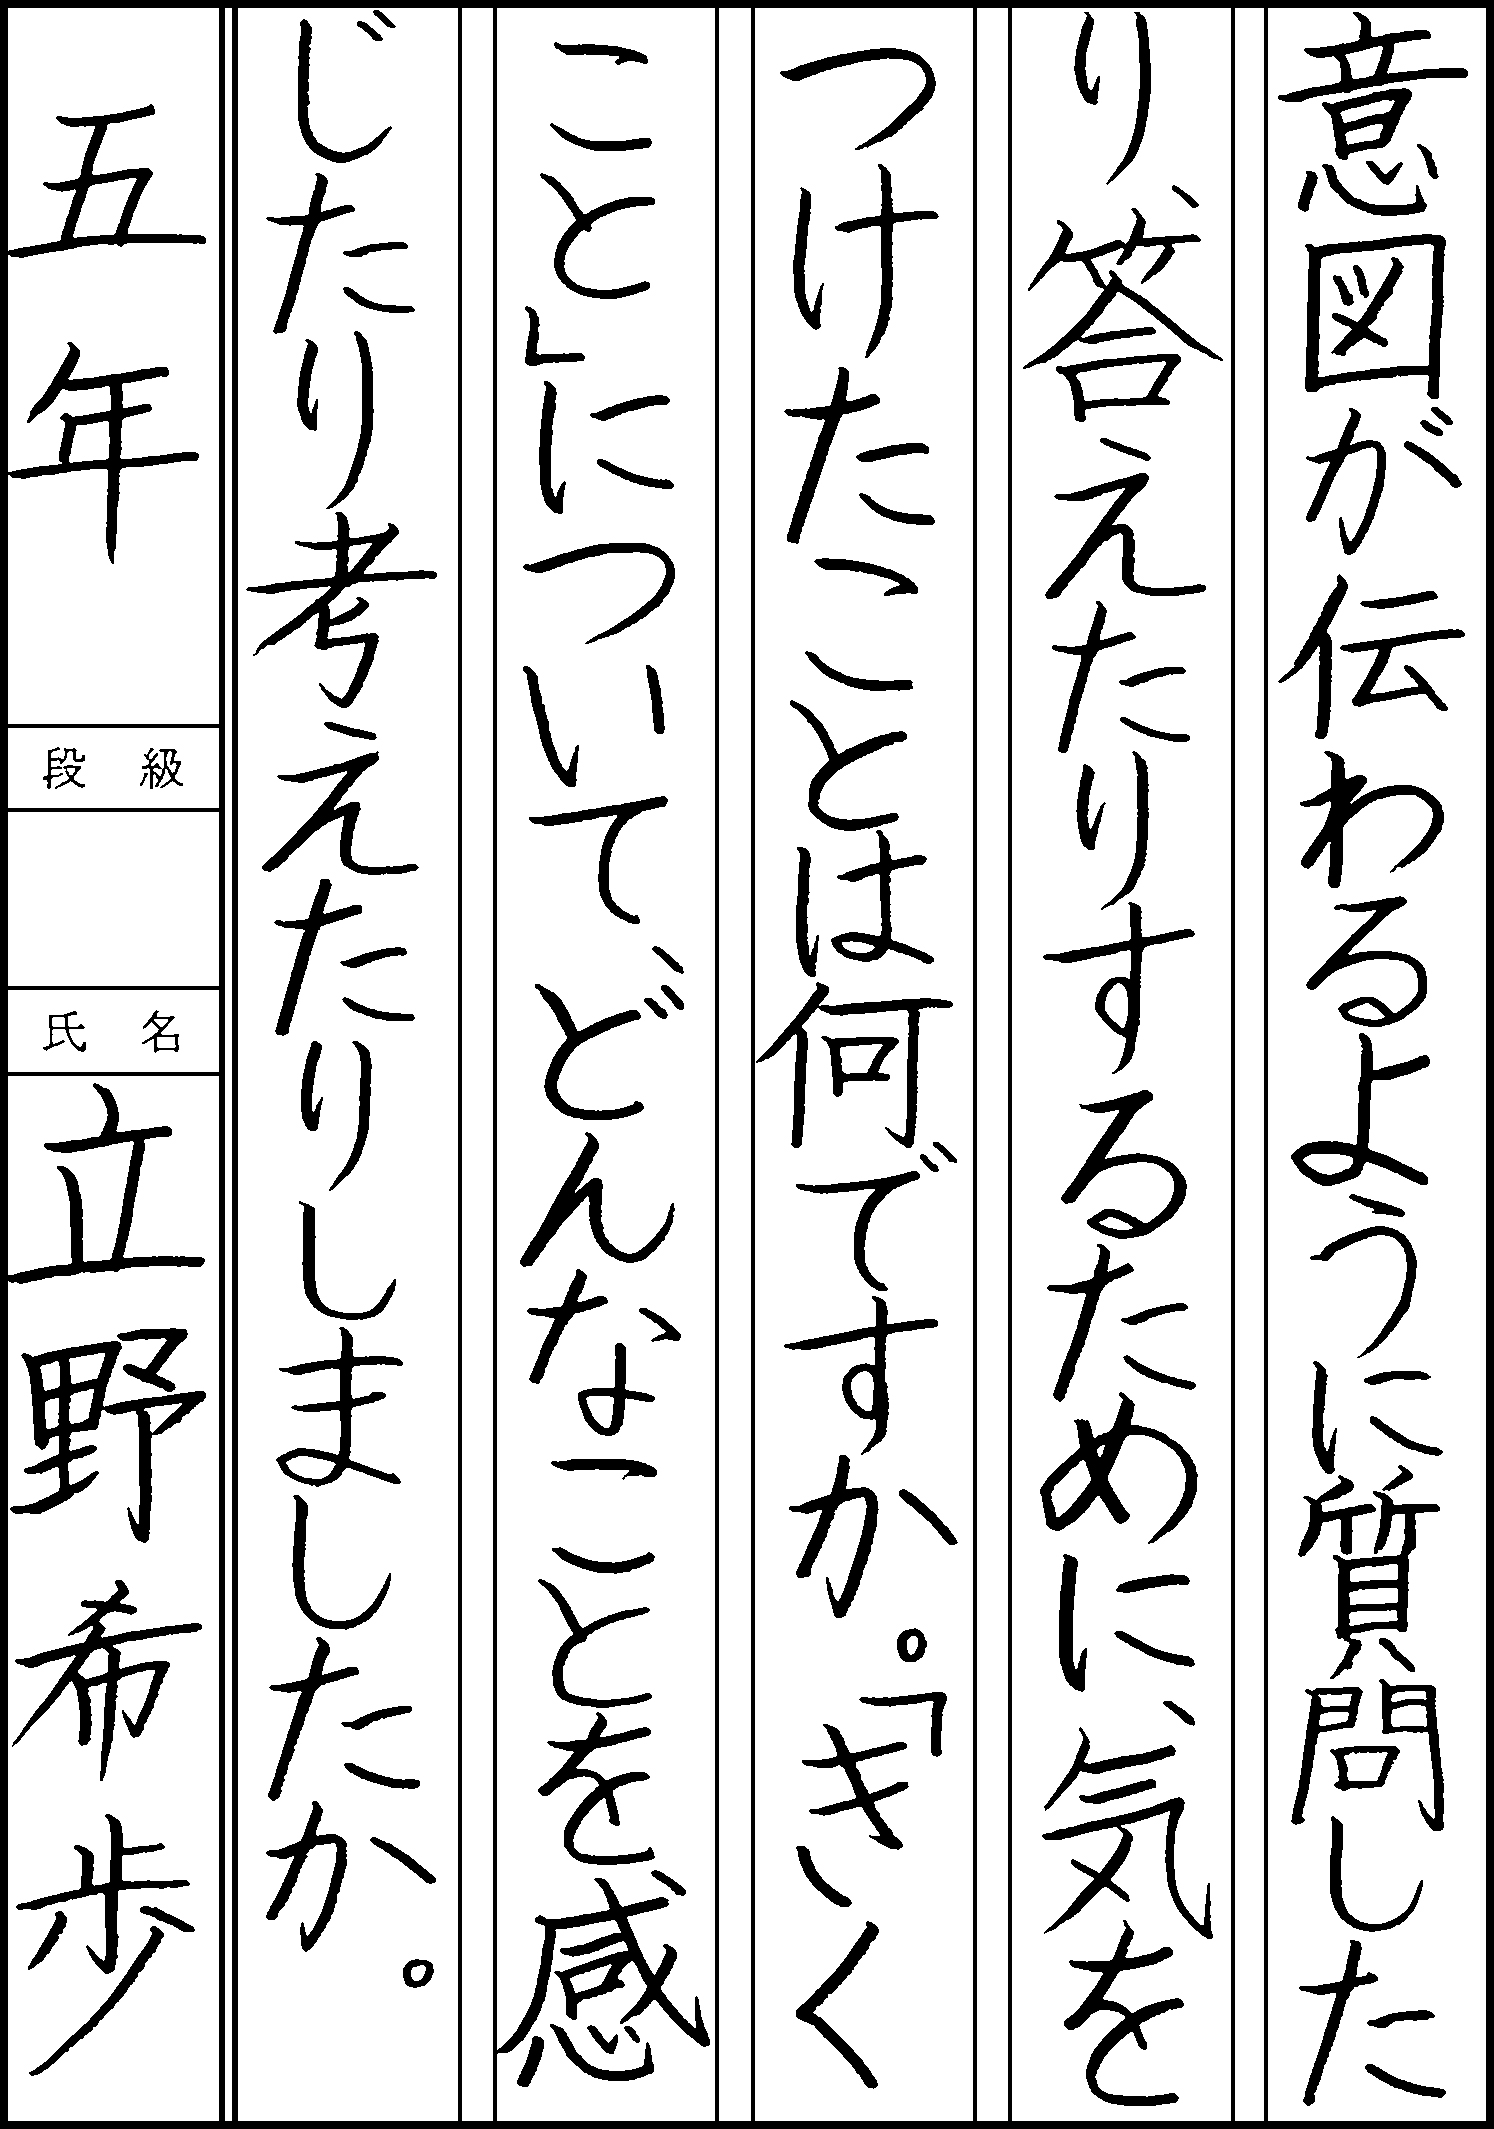 意図が伝わるように質問した
り、答えたりするために、気を
つけたことは何ですか。「きく
こと」について、どんなことを、感
じたり考えたりしましたか。
五年
段級
氏名
立野希歩